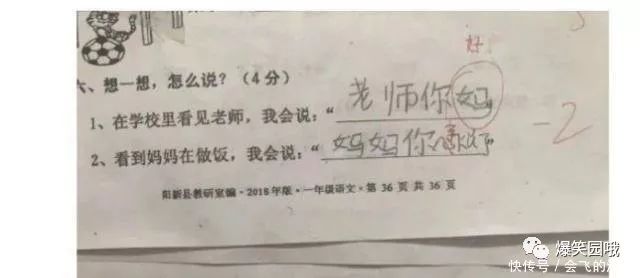 好
六、想一想，怎么说？（4分）
1、在学校里看见老师，我会说：“老师你妈”
-2
2、看到妈妈在做饭，我会说：“妈妈你
阳新县教研室编·2018年版·一年级语文·第 36 页 共 36 页
爆笑园哦
快传号 / 会飞的